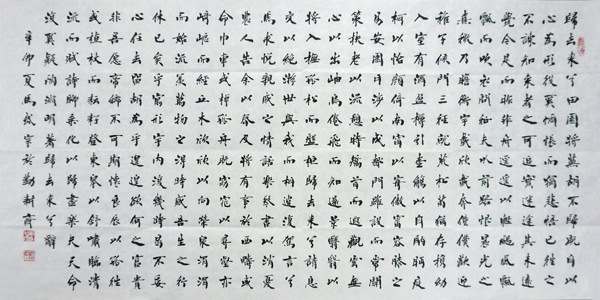 歸去來兮田園將蕪胡不歸既自以
心為形役奚惆悵而獨悲悟已往之
不諫知來者之可追實迷途其未遠
覺今是而昨非舟遙遙以輕颺風飄
飄而吹衣問征夫以前路恨晨光之
熹微乃瞻衡宇載欣載奔僮僕歡迎
稚子候門三徑就荒松菊猶存攜幼
入室有酒盈樽引壺觴以自酌眄庭
柯以怡顏倚南窗以寄傲審容膝之
易安園日涉以成趣門雖設而常關
策扶老以流憩時矯首而遐觀雲無
心以出岫鳥倦飛而知還景翳翳以
將入撫孤松而盤桓歸去來兮請息
交以絕遊世與我而相違復駕言兮
焉求悅親戚之情話樂琴書以消憂
農人告余以春及將有事於西疇或
命巾車或棹孤舟既窈窕以尋壑亦
崎嶇而經丘木欣欣以向榮泉涓涓
而始流善萬物之得時感吾生之行
休已矣乎寓形宇內復幾時曷不委
心任去留胡為乎遑遑欲何之富貴
非吾願帝鄉不可期懷良辰以孤往
或植杖而耘耔登東皋以舒嘯臨清
流而賦詩聊乘化以歸盡樂夫天命
復奚疑陶淵明著歸去來兮辭
辛卯夏馬成宇於勤耕齋